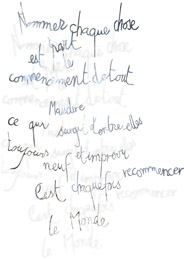 Nommer chaque chose
est à part
le
commencement de tout
Maudire
ce qui surgit d'ombre elles
toujours neuf et imprévu
c'est chaque fois recommencer
le Monde